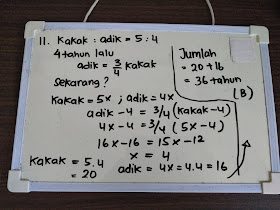 11. Kakak : adik = 5 : 4
4 tahun lalu
adik = 3/4 kakak
Sekarang ?
Kakak = 5x ; adik = 4x
adik - 4 = 3/4 (kakak - 4)
4x - 4 = 3/4 (5x - 4)
16x - 16 = 15x - 12
x = 4
Kakak = 5.4
= 20
adik = 4x = 4.4 = 16
Jumlah
= 20 + 16
= 36 tahun
(B)